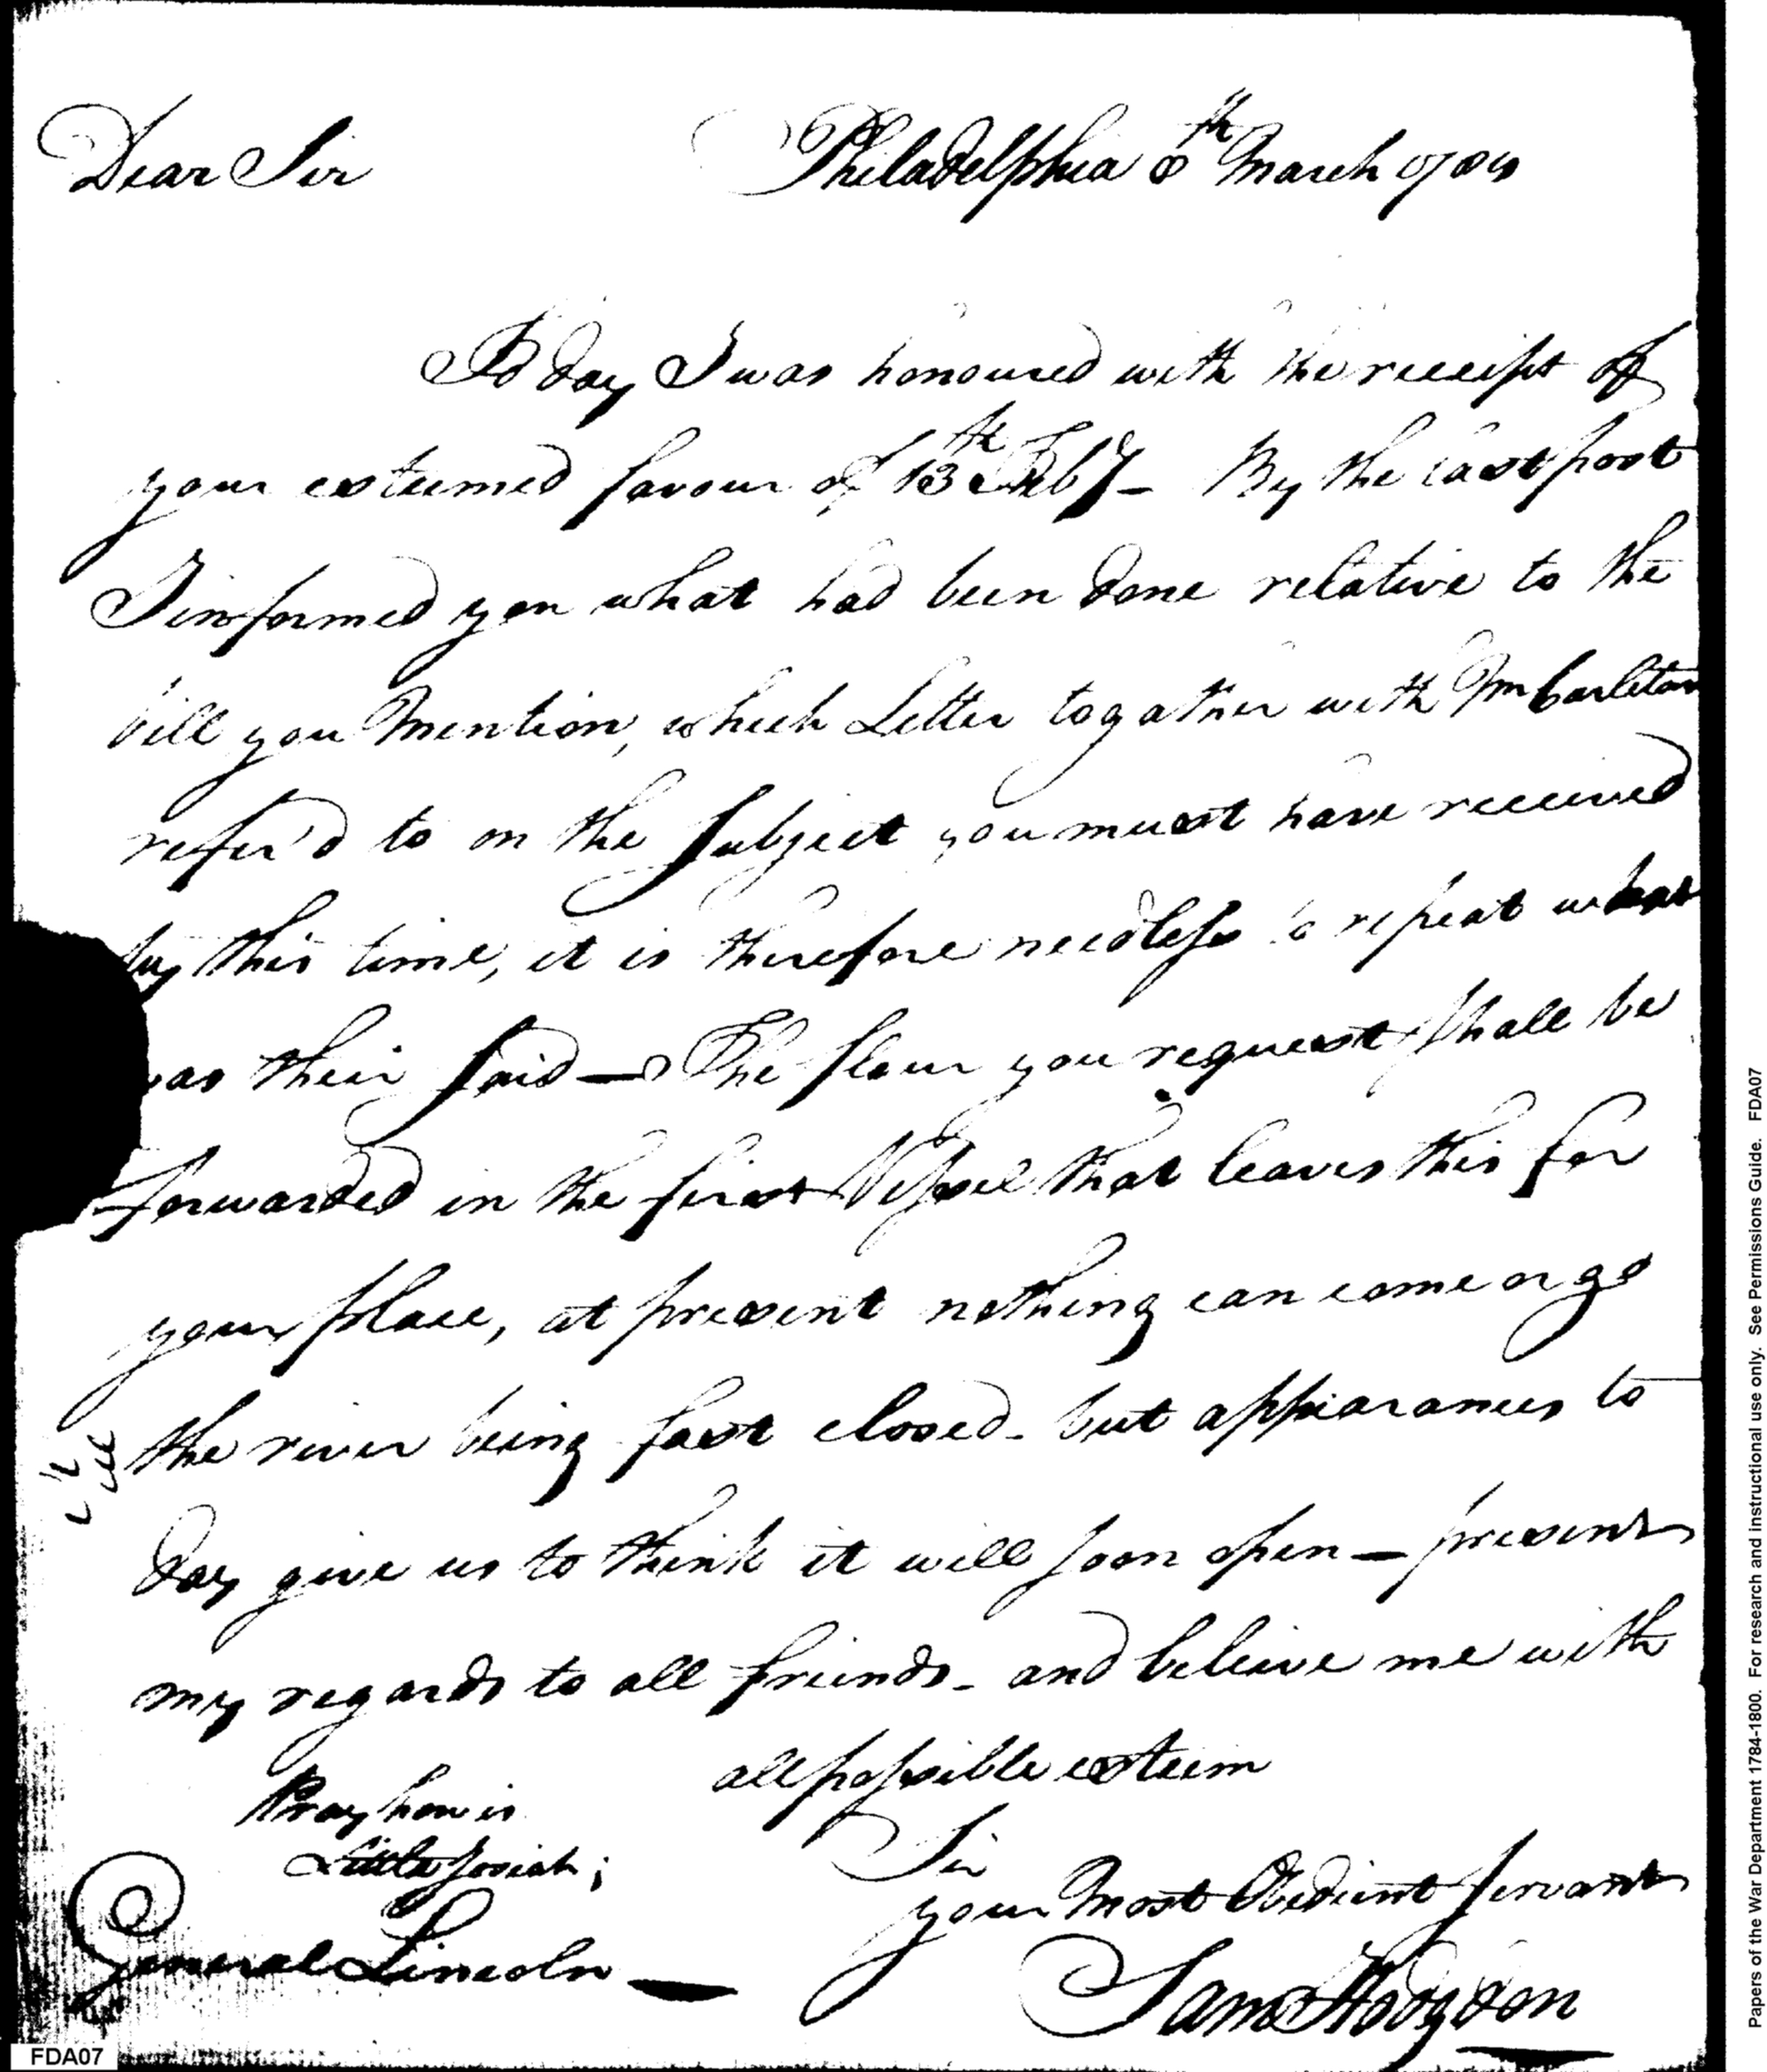 Dear Sir Philadelphia 8th March 1784
To day I was honoured with the receipt of
your esteemed favour of 13th Feby - By the last post
I informed you what had been done relative to the
bill you Mention, which Letter togather with Mr Carleton
refer'd to on the Subject you must have received
by this time, it is therefore needless to repeat what
was their Said — The flour you request shall be
forwarded in the first Vessel that leaves this for
your place, at present nothing can come or go
the river being fast closed - but appearances to
day give us to think it will soon open — present
my regards to all friends - and beleive me with
all possible esteem
Pray how is
Little Josiah;
Sir
your Most Obedient Servant
General Lincoln —
Saml Hodgdon
FDA07
Papers of the War Department 1784-1800. For research and instructional use only. See Permissions Guide. FDA07